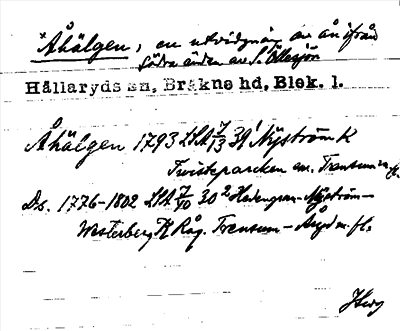 *Åhälgen, en utvidgning av ån ifrån
södra änden av S. Öllesjön
Hällaryds sn, Bräkne hd, Blek. l.
Åhälgen 1793 LStA 7/13 39¹ Nyström K
Tvisteparcken em. Trensum m. fl.
Ds. 1776-1802 LStA 7/10 30² Hedengran-Nyström-
Westerberg K Råg. Trensum-Angd m. fl.